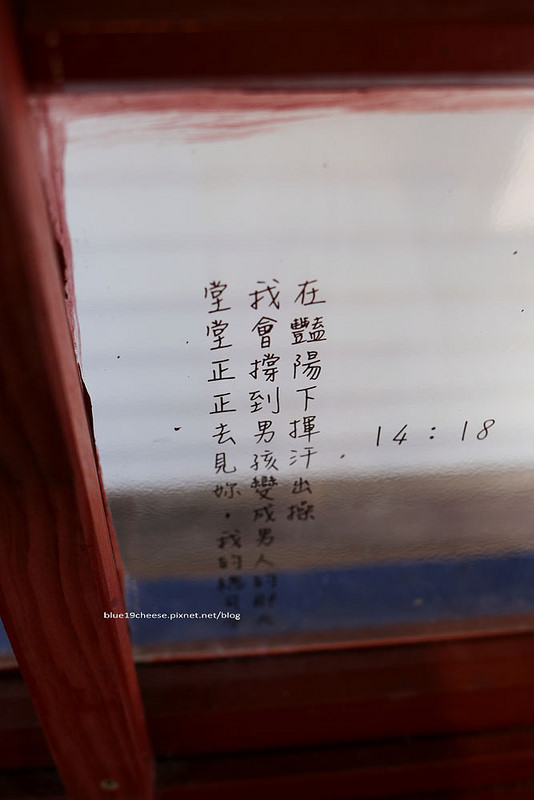 14:18
在豔陽下揮汗出操
我會撐到男孩變成男人的那天
堂堂正正去見妳。我的
blue19cheese.pixnet.net/blog